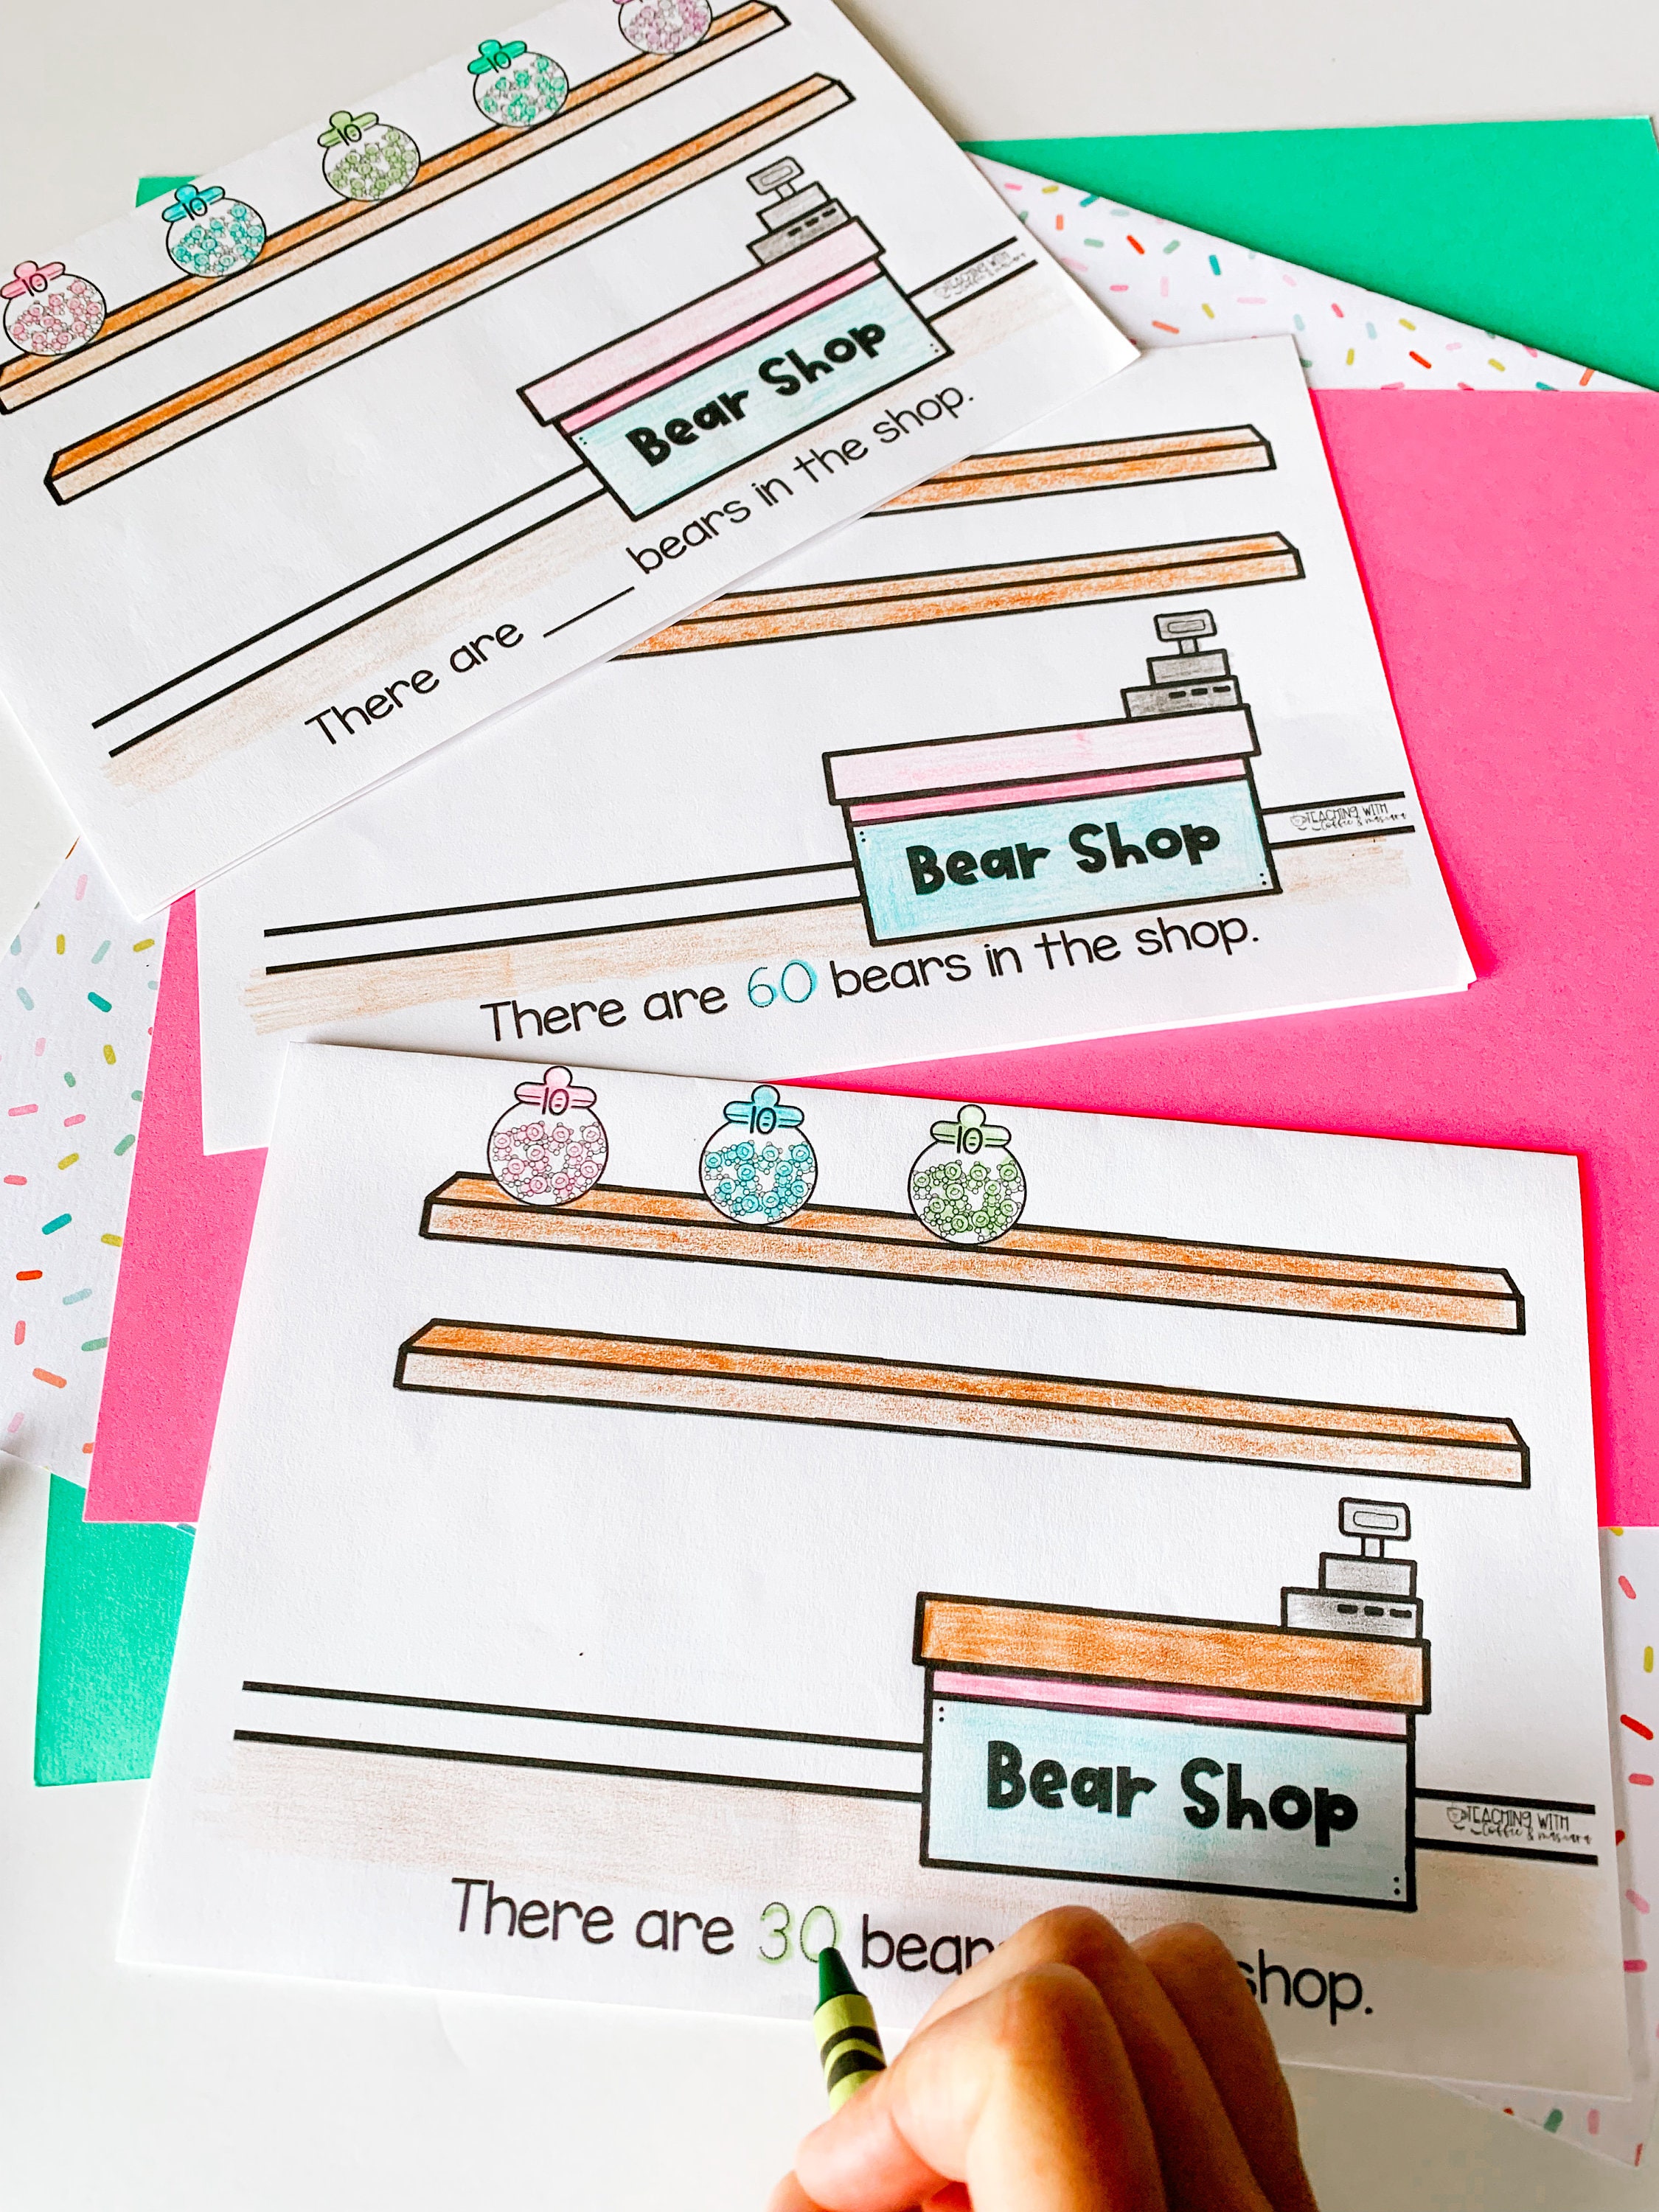 10
10
10
10
Bear Shop
TEACHING WITH
Coffee & mascara
There are ____ bears in the shop.
Bear Shop
TEACHING WITH
Coffee & mascara
There are 60 bears in the shop.
10
10
10
Bear Shop
TEACHING WITH
Coffee & mascara
There are 30 bear shop.